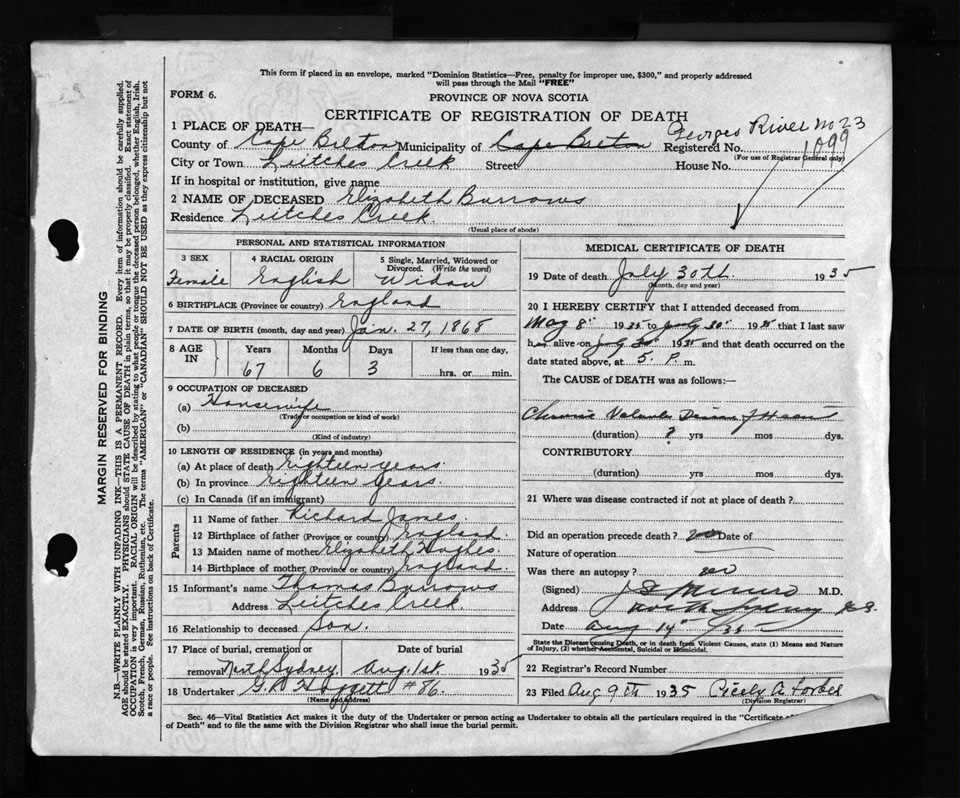 This form if placed in an envelope, marked "Dominion Statistics—Free, penalty for improper use, $300," and properly addressed
will pass through the Mail "FREE"
FORM 6.
PROVINCE OF NOVA SCOTIA
CERTIFICATE OF REGISTRATION OF DEATH
Georges River no 23
1 PLACE OF DEATH—
County of Cape Breton Municipality of Cape Breton Registered No. 1099
(For use of Registrar General only)
City or Town Leitches Creek Street House No.
If in hospital or institution, give name
2 NAME OF DECEASED Elizabeth Burrows
Residence Leitches Creek.
(Usual place of abode)
PERSONAL AND STATISTICAL INFORMATION
3 SEX 4 RACIAL ORIGIN 5 Single, Married, Widowed or
Divorced. (Write the word)
Female English Widow
6 BIRTHPLACE (Province or country) England
7 DATE OF BIRTH (month, day and year) Jan. 27, 1868
8 AGE IN Years Months Days If less than one day,
67 6 3 hrs. or min.
9 OCCUPATION OF DECEASED
(a) Housewife
(Trade or occupation or kind of work)
(b)
(Kind of industry)
10 LENGTH OF RESIDENCE (in years and months)
(a) At place of death eighteen years
(b) In province eighteen years.
(c) In Canada (if an immigrant)
Parents
11 Name of father Richard James.
12 Birthplace of father (Province or country) England
13 Maiden name of mother Elizabeth Hughes.
14 Birthplace of mother (Province or country) England
15 Informant's name Thomas Burrows
Address Leitches Creek.
16 Relationship to deceased Son.
17 Place of burial, cremation or Date of burial
removal North Sydney Aug 1st. 1935
18 Undertaker #86.
(Name and address)
MEDICAL CERTIFICATE OF DEATH
19 Date of death July 30th. 1935
(Month, day and year)
20 I HEREBY CERTIFY that I attended deceased from
May 8 1935 to July 30 1935 that I last saw
h alive on July 30 1935 and that death occurred on the
date stated above, at 5. P. m.
The CAUSE of DEATH was as follows:—
Chronic Valvular Disease of Heart
(duration) ? yrs mos dys.
CONTRIBUTORY
(duration) yrs mos dys.
21 Where was disease contracted if not at place of death?
Did an operation precede death? no Date of
Nature of operation
Was there an autopsy? no
(Signed) Munro M.D.
Address North Sydney
Date Aug 14 /35
State the Disease causing Death, or in deaths from Violent Causes, state (1) Means and
Nature of Injury, (2) whether Accidental, Suicidal or Homicidal.
22 Registrar's Record Number
23 Filed Aug 9th 1935 Cicely A. Forbes
(Division Registrar)
Sec. 46—Vital Statistics Act makes it the duty of the Undertaker or person acting as Undertaker to obtain all the particulars required in the "Certificate of
of Death" and to file the same with the Division Registrar who shall issue the burial permit.
MARGIN RESERVED FOR BINDING
N.B.—WRITE PLAINLY WITH UNFADING INK—THIS IS A PERMANENT RECORD. Every item of information should be carefully supplied.
AGE should be stated EXACTLY. PHYSICIANS should STATE CAUSE OF DEATH in plain terms, so that it may be properly classified. Exact statement of
OCCUPATION is very important. RACIAL ORIGIN will be described by stating to what people or tongue the deceased person belonged, whether English, Irish,
Scotch, French, German, Russian, Ruthenian, etc. The terms "AMERICAN" or "CANADIAN" SHOULD NOT BE USED as they express citizenship but not
a race or people. See instructions on back of Certificate.